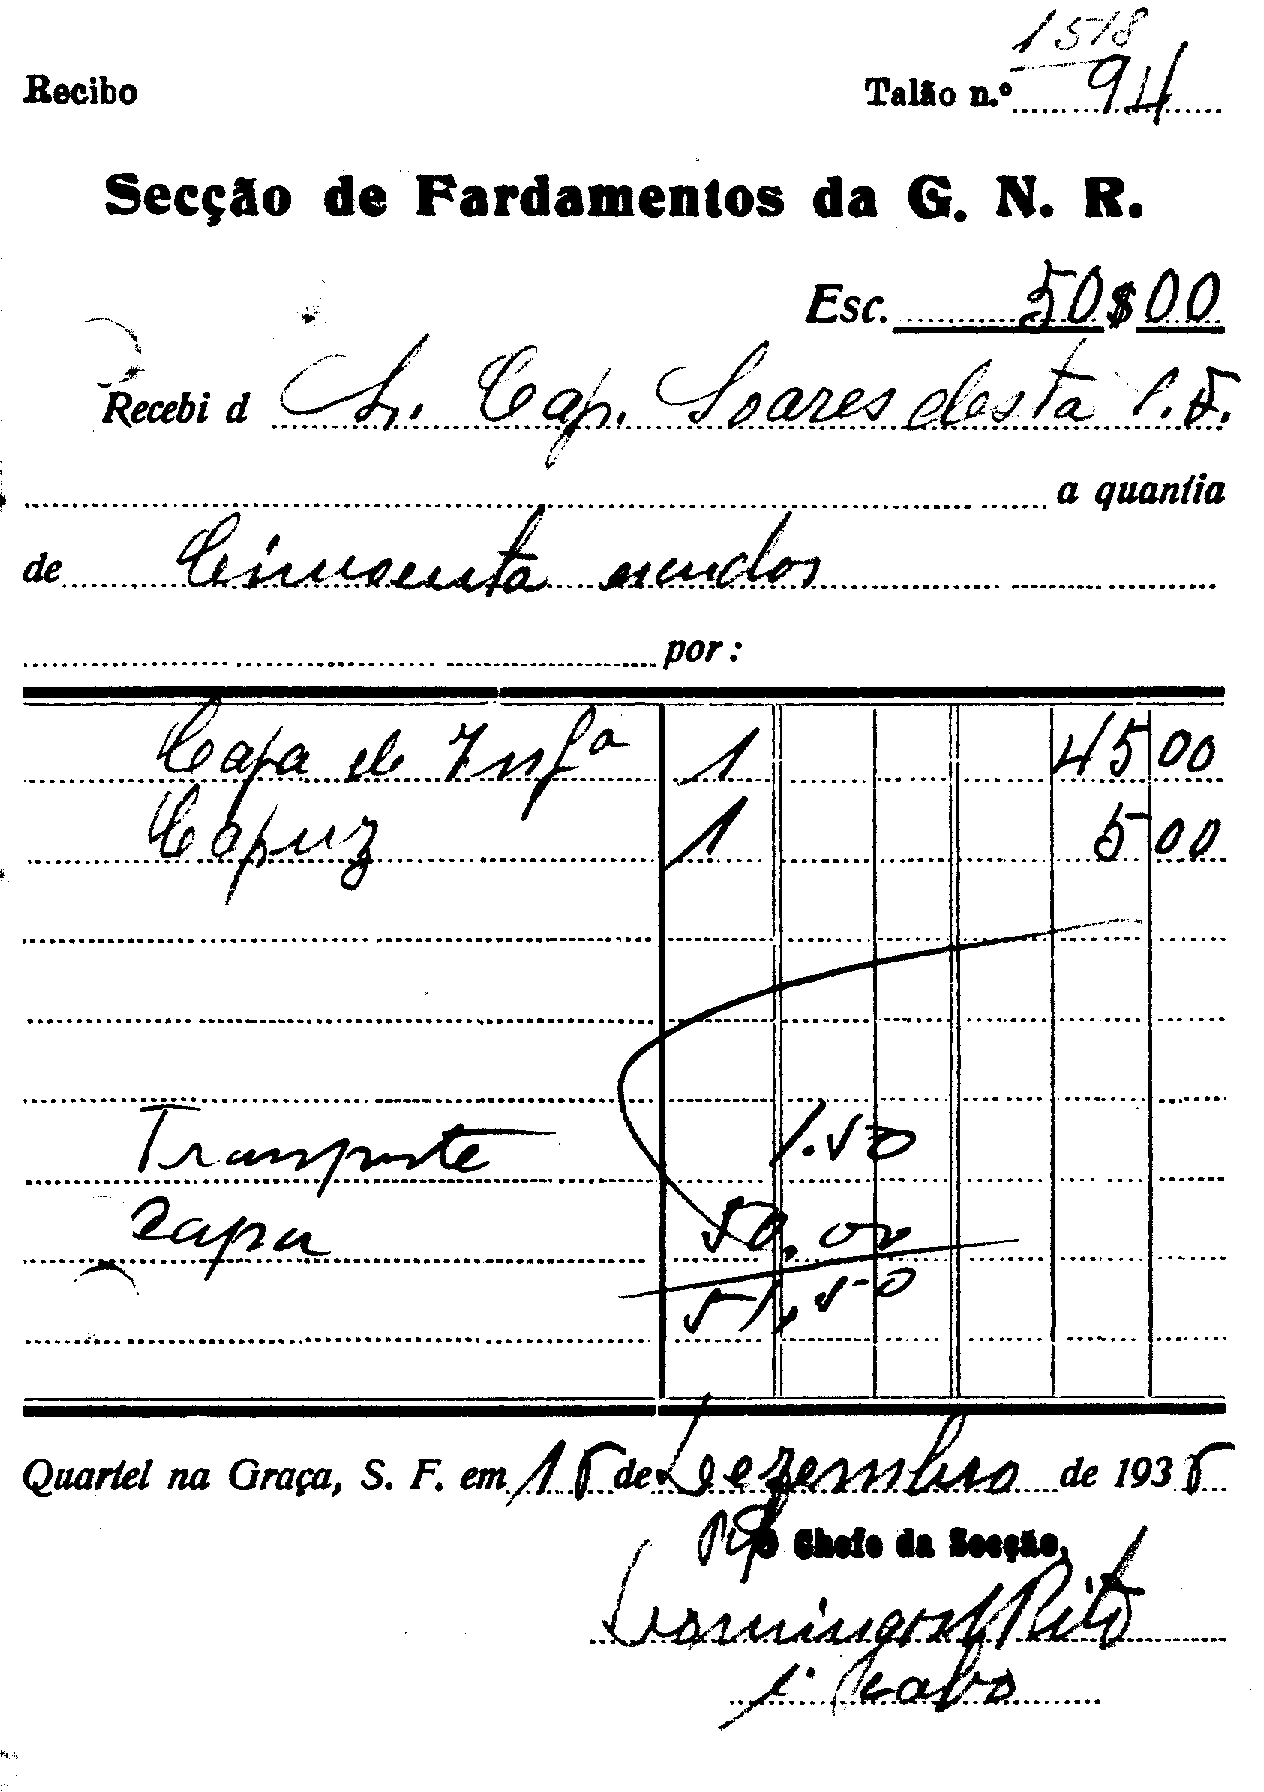 1518
Recibo Talão n.º 94
Secção de Fardamentos da G. N. R.
Esc. 50$00
Recebi d Sr. Cap. Soares desta S.F.
a quantia
de Cincoenta escudos
por:
Capa de Infª 1 45 00
Capuz 1 5 00
Transporte 1.50
Capa 50,00
51,50
Quartel na Graça, S. F. em de Dezembro de 193
O Chefe da Secção,
Domingos Rito
1º Cabo